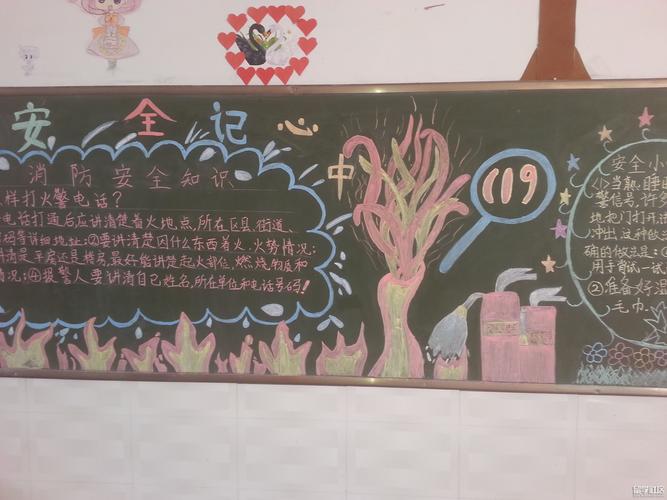 安全记心中
消防安全知识
样打火警电话?
电话打通后应讲清楚着火地点,所在区县、街道、
等详细地址;②要讲清楚因什么东西着火,火势情况;
讲清是平房还是楼房,最好能讲楚起火部位,燃烧物质和
情况;④报警人要讲清自己姓名,所在单位和电话号码!
119
安全小
①当熟睡
警信号,许多
地把门打开
冲出,这种做
确的做法是:①
用手背试一试
②准备好湿
毛巾.